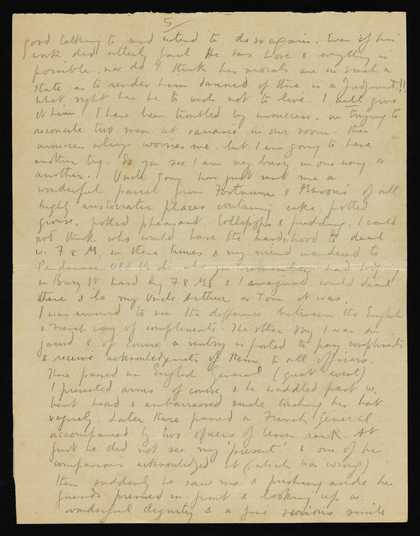 5
good talking to and intend to do so again. Even if his
work did utterly fail He has Love & everything is
possible, nor do I think his morals are in such a
state as to render him damned if there is a Judgment!!
What right has he to wish not to live. I will give
it him! I have been troubled by in trying to
reconcile two men at variance in our room. This
always worries me. but I am going to have
another try. So you see I am very busy in one way or
another. Uncle Gony has just sent me a
wonderful parcel from Fortnum & Mason's of all
highly aristocratic places containing cake, potted
grouse, potted pheasant, Lollipops & pudding. I could
not think who would have the hardihood to deal
w. F & M, in these times & my mind wandered to
had lodging
in Bury St hard by F & M & I imagined would deal
there & lo my Uncle Arthur or Tom it was.
I was amused to see the difference between the English
& French way of compliments. The other day I was on
guard & of course a sentry is posted to pay compliments
& receive acknowledgments of them to all officers.
There passed an English General (quite )
I presented arms of course & he waddled past w.
bent head & embarrassed smile touching his hat
vaguely. Later there passed a French General
accompanied by two officers of lesser rank. At
first he did not see my 'present' & one of his
companions acknowledged it (which was wrong)
Then suddenly he saw me & pushing aside his
friends pressed in front & looking up w.
wonderful dignity & a fine serious smile